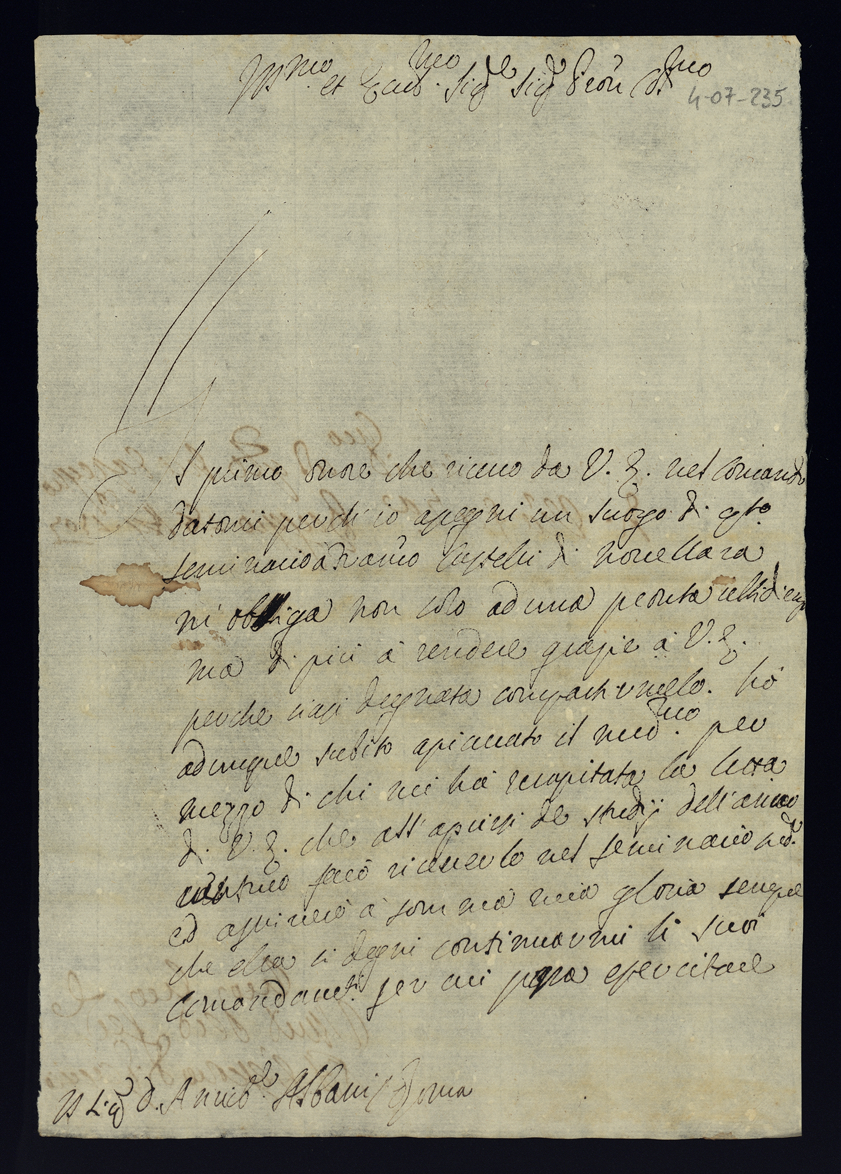 Ill.mo et Ecc.mo Sig.e Sig.e Pron Col.mo
4-07-235
Il primo onore che riceuo da V. E. nel comando
datomi perch'io apogni un luogo di q.to
seminario a Franc.o Capelli di Nouellara
mi obliga non solo ad una pronta ubbidienza
ma di più à rendere grazie à V. E.
perche siasi degnata compartirmelo. hò
adunque subito auisato il med.mo per
mezzo di chi mi hà recapitata la lettra
di V. E. che all'aprirsi de studij dell'anno
venturo sarò riceuerlo nel seminario sud.o
ed ascriuerò à somma mia gloria sempre
che ella si degni continuarmi li suoi
comandam.ti per cui possa esercitare
Ill. Sig. D. Annib.e Albani Roma